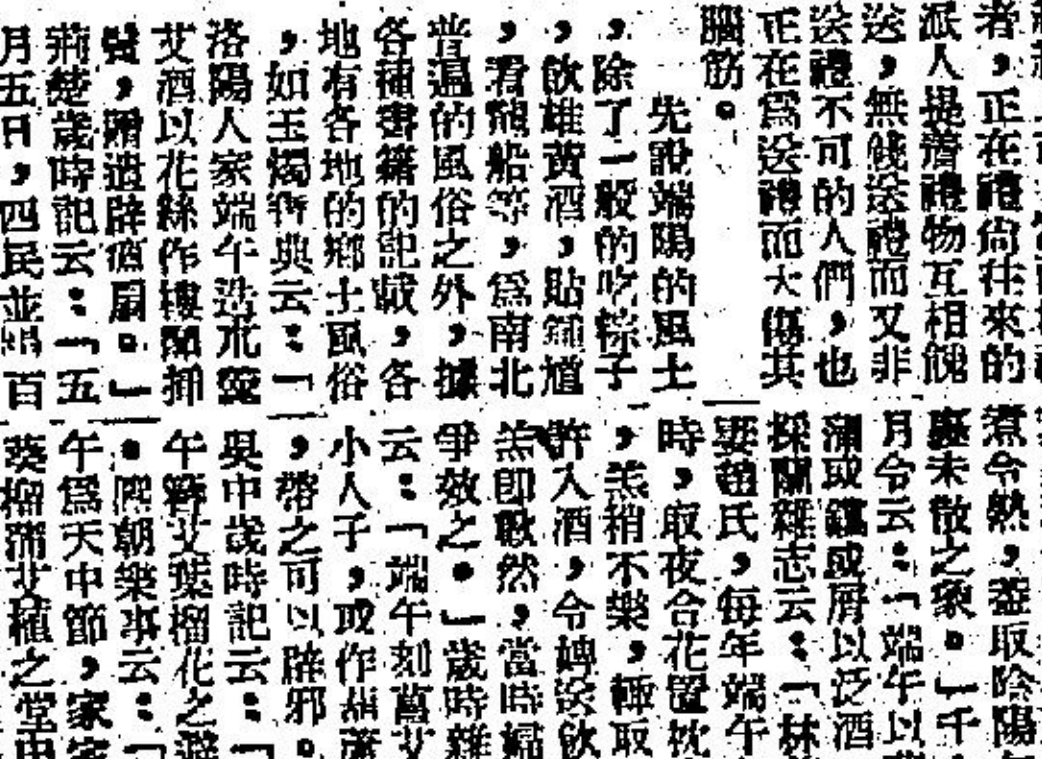 者，正在禮尙往來的
派人提着禮物互相餽
送，無餞送禮而又非
送禮不可的人們，也
正在爲送禮而大傷其
腦筋。
先說端陽的風土
，除了一般的吃粽子
，飲雄黃酒，貼鍾馗
，看龍船等，爲南北
普遍的風俗之外，據
各種書籍的記載，各
地有各地的鄉土風俗
，如玉燭寶典云：「
洛陽人家端午造朮羹
艾酒以花絲作樓閣插
鬢，贈遺辟瘟扇。」
荊楚歲時記云：「五
月五日，四民並蹋百
煮令熟，蓋取陰陽
裹未散之象。」千
月令云：「端午以
蒲或鏤或屑以泛酒
採蘭雜志云：「林
要趙氏，每年端午
時，取夜合花置枕
，羔稍不樂，輒取
許入酒，令婢送飲
羔卽歡然，當時婦
爭效之。」歲時雜
云：「端午刻菖艾
小人子，或作葫蘆
，帶之可以辟邪。
吳中歲時記云：「
午簪艾葉榴花之
。熙朝樂事云：「
午爲天中節，家家
葵榴蒲艾植之堂中